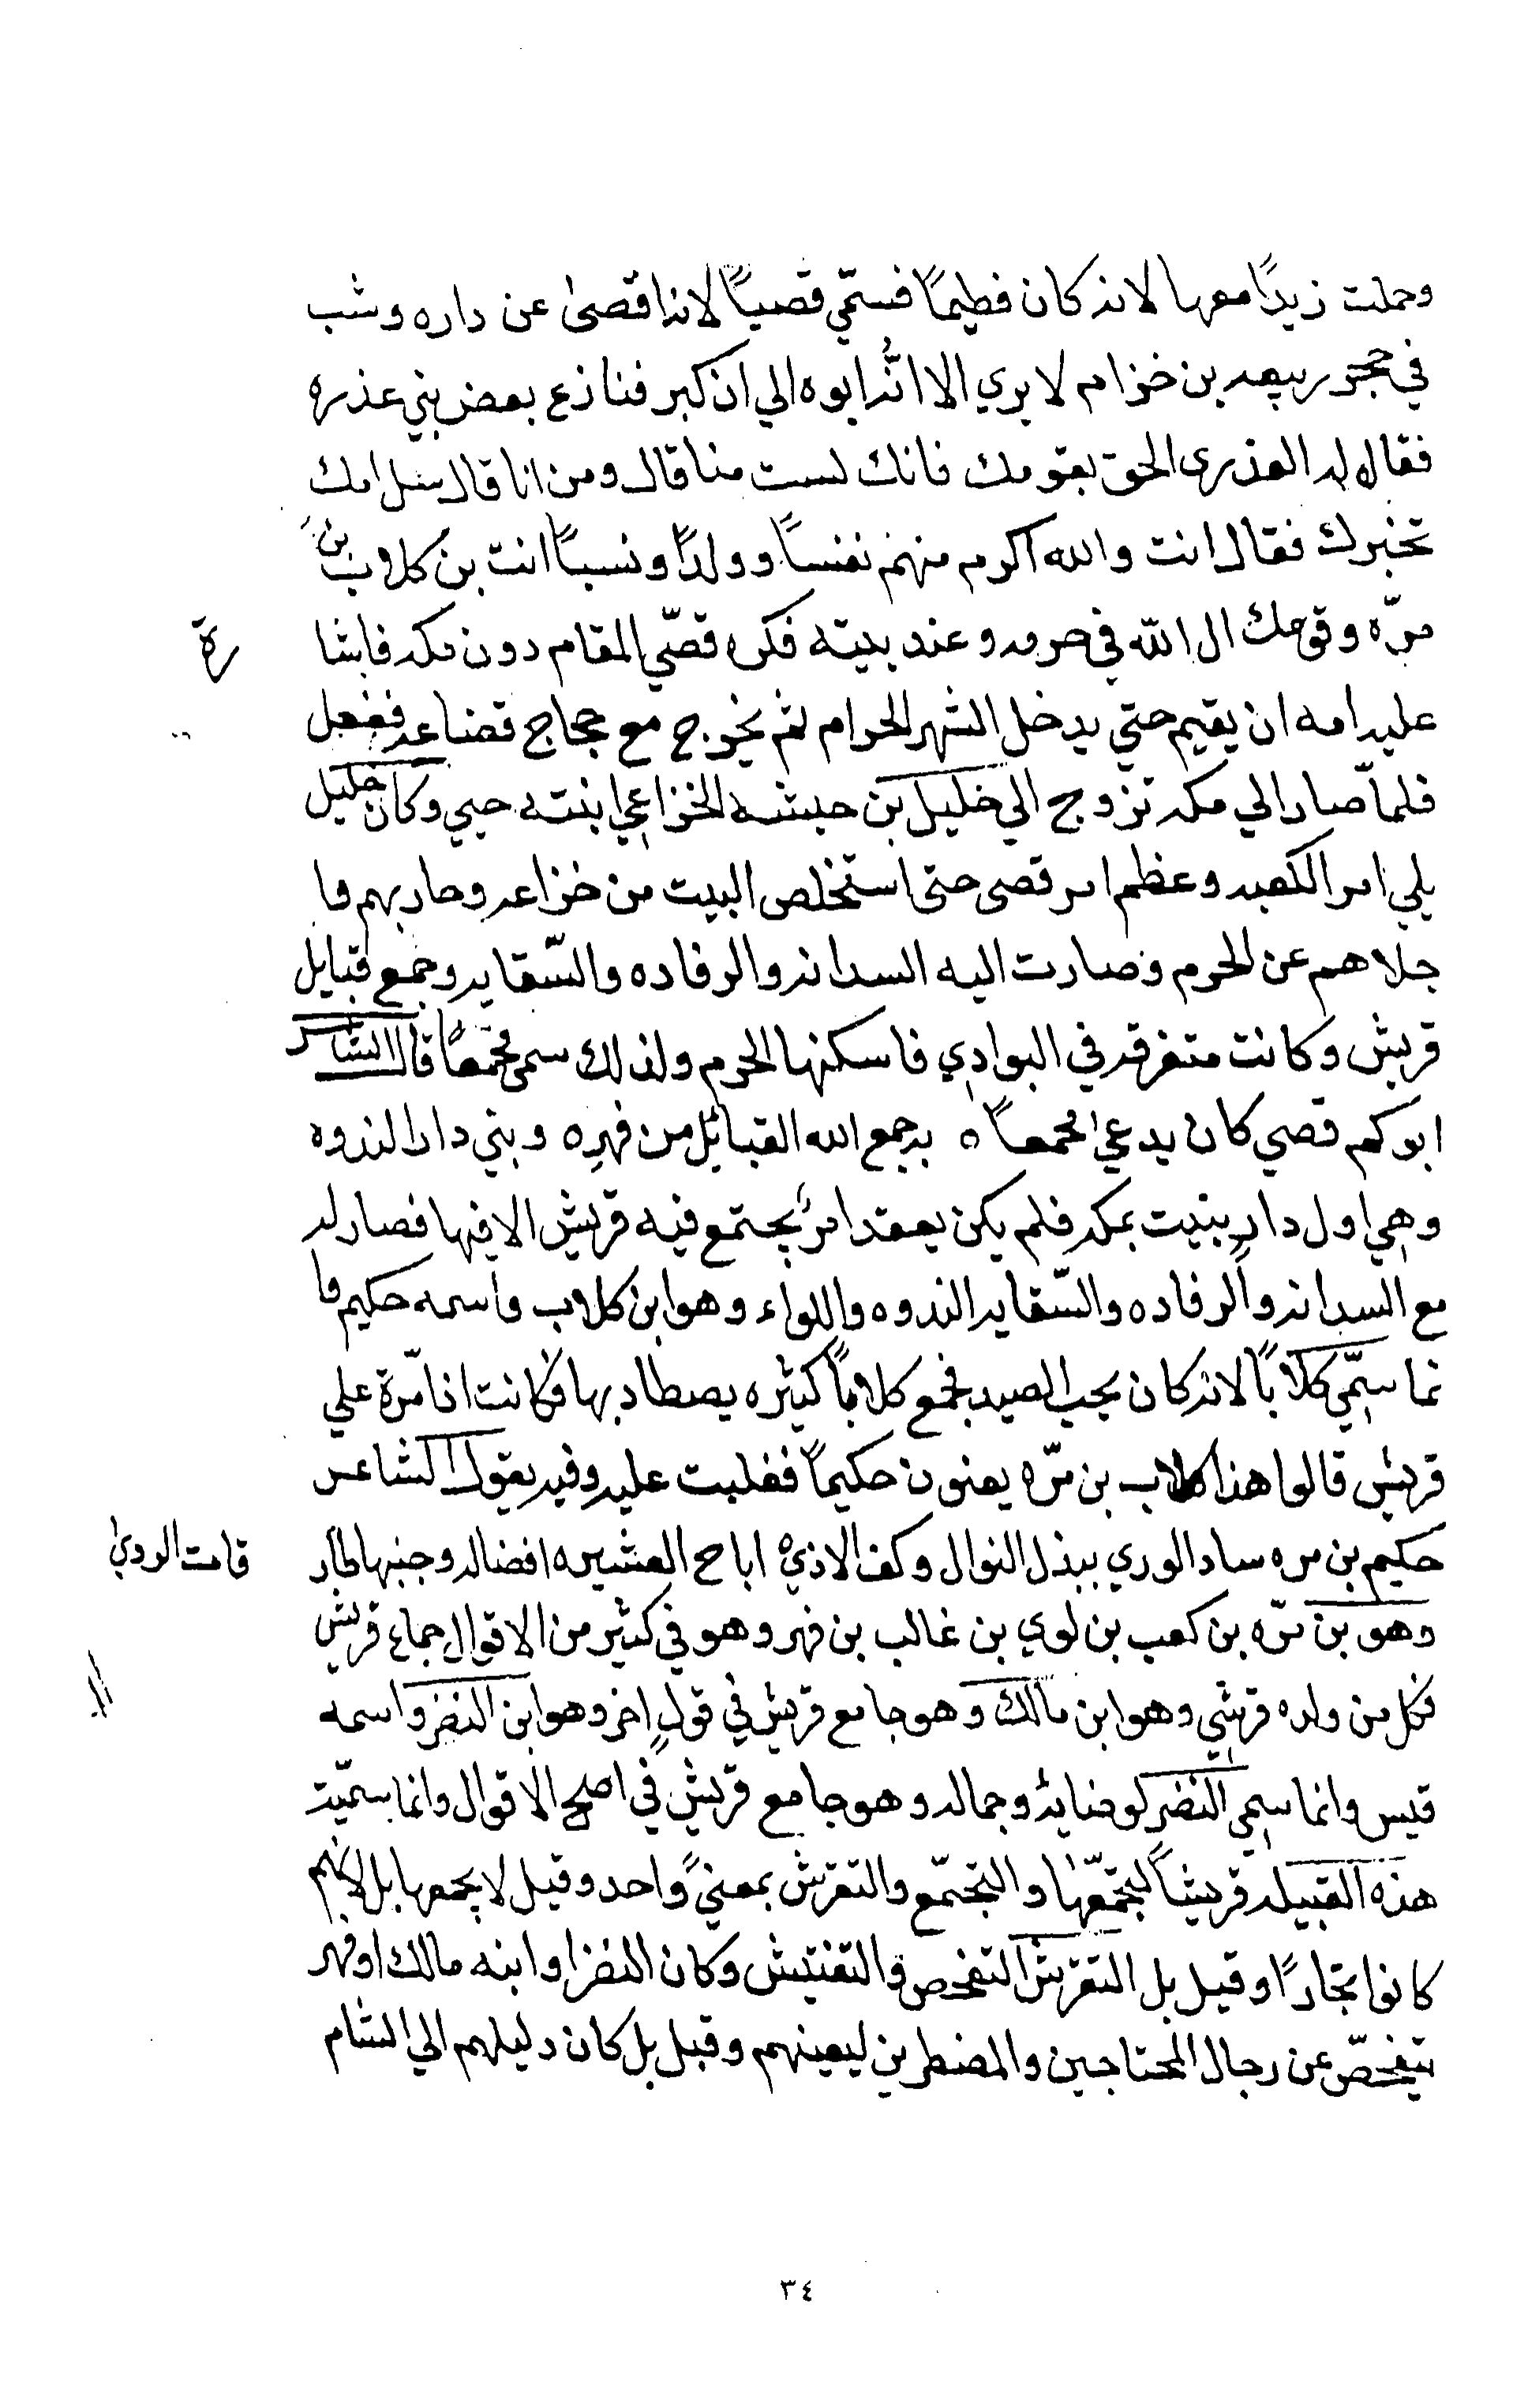 وحملت زيدًا معها لانه كان فطيمًا فسمّي قصيًا لانه اقصىٰ عن داره وشب
في حجر ربيعه بن خزام لا يري الا انّه ابوه الي ان كبر فنازع بعض بني عذره
فقال له العذرى الحق بقومك فانك لست منا قال ومن انا قال سل امك
تخبرك فقال انت والله اكرم منهم نفسًا وولدًا ونسبًا انت بن كلاب بن
مرّه وقومك ال الله في حرمه وعند بيته فكره قصّي المقام دون مكه فاشا
رة
عليه امه ان يقيم حتي يدخل الشهر الحرام ثم يخرج مع حجاج قضاعه ففعل
فلمّا صار الي مكه تزوج الي خليل بن حبشه الخزاعي ابنته حبي وكان خليل
يلي امر الكعبه وعظم امر قصى حتى استخلص البيت من خزاعه وحاربهم وا
جلاهم عن الحرم وصارت اليه السدانه والرفاده والسّقايه وجمع قبايل
قريش وكانت متفرقه في البوادي فاسكنها الحرم ولذلك سمى مجمعًا قال الشاعر
ابوكم قصي كان يدعي مجمعًا ه به جمع الله القبائل من فهرِه وبني دار الندوه
وهي اول دارٍ بنيت بمكه فلم يكن يعقد امرٌ يجتمع فيه قريش الا فيها فصار له
مع السدانه والرفاده والسّقايه الندوه واللواء وهو ابن كلاب واسمه حكيم وا
نما سمّي كلابًا لانه كان يحب الصيد فجمع كلابًا كثيره يصطاد بها فكانت اذا مّرة علي
قريش قالوا هذا كلاب بن مّره يعنون حكيمًا فغلبت عليه وفيه يقول الشاعر
حكيم بن مره ساد الوري ببذل النوال وكف الاذي اباح العشيره افضاله وجنبها طار
قات الردي
وهو بن مّره بن كعب بن لوي بن غالب بن فهر وهو في كثير من الاقوال جماع قريش
فكل من ولده قرشي وهو ابن مالك وهو جامع قريش في قولٍ اخر وهو ابن النضر واسمه
قيس وانما سمي النضر لوضايه وجماله وهو جامع قريش في اصح الاقوال وانما سمّيت
هذه القبيله قريشًا لتجمّعها والتجمّع والتقرش بمعنيً واحد وقيل لا يجمعها بل لانهم
كانوا تجارًا وقيل بل التقريش التفحص والتفتيش وكان النضر او ابنه مالك او فهر
يتفحّص عن رجال المحتاجين والمضطرين ليعينهم وقيل بل كان دليلهم الي الشام
٣٤